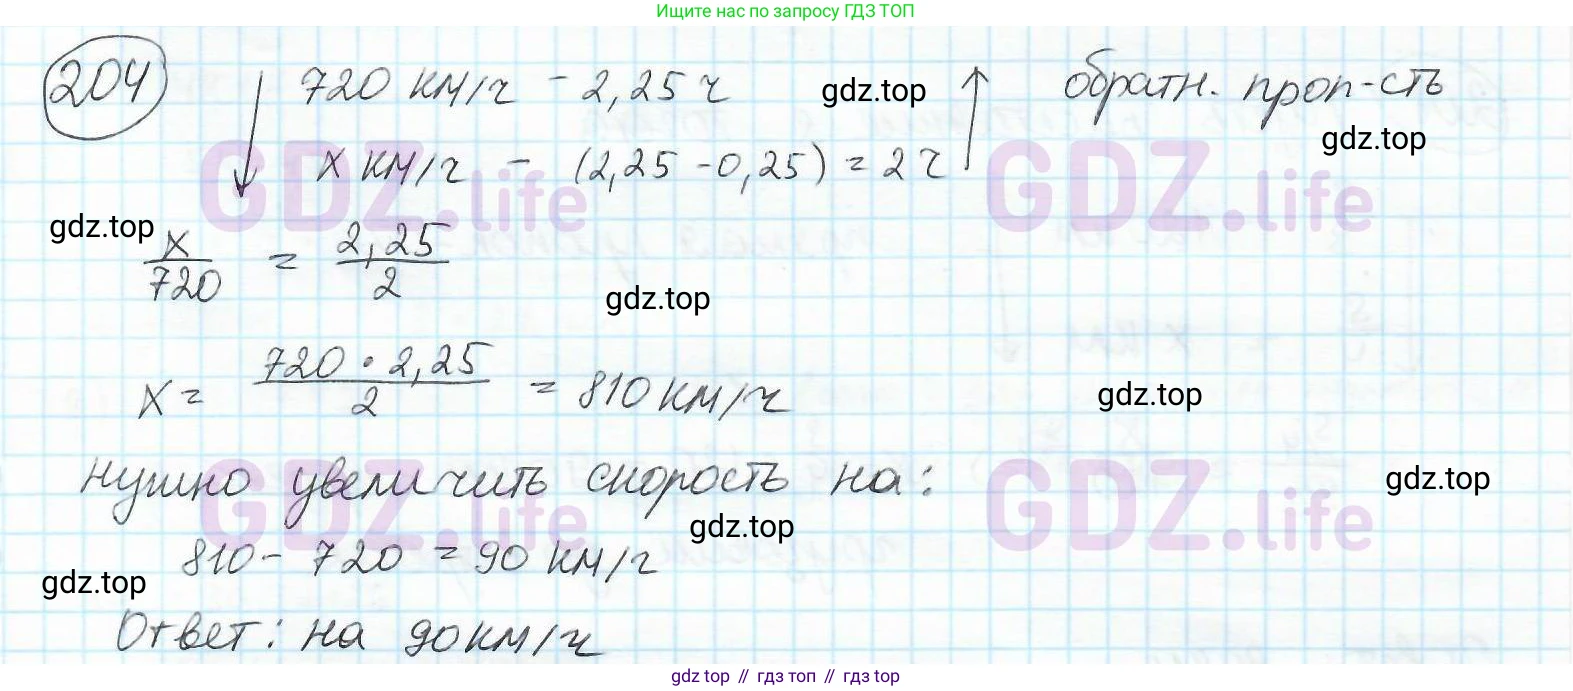 Ищите нас по запросу ГДЗ ТОП
204
720 км/ч - 2,25 ч
gdz.top
обратн. проп-сть
gdz.top
x км/ч - (2,25 - 0,25) = 2 ч
GDZ.life
GDZ.life
gdz.top
x/720 = 2,25/2
gdz.top
x = 720 · 2,25/2 = 810 км/ч
gdz.top
нужно увеличить скорость на:
gdz.top
GDZ.life
GDZ.life
gdz.top
810 - 720 = 90 км/ч
gdz.top
Ответ: на 90 км/ч
gdz.top // гдз топ // гдз top